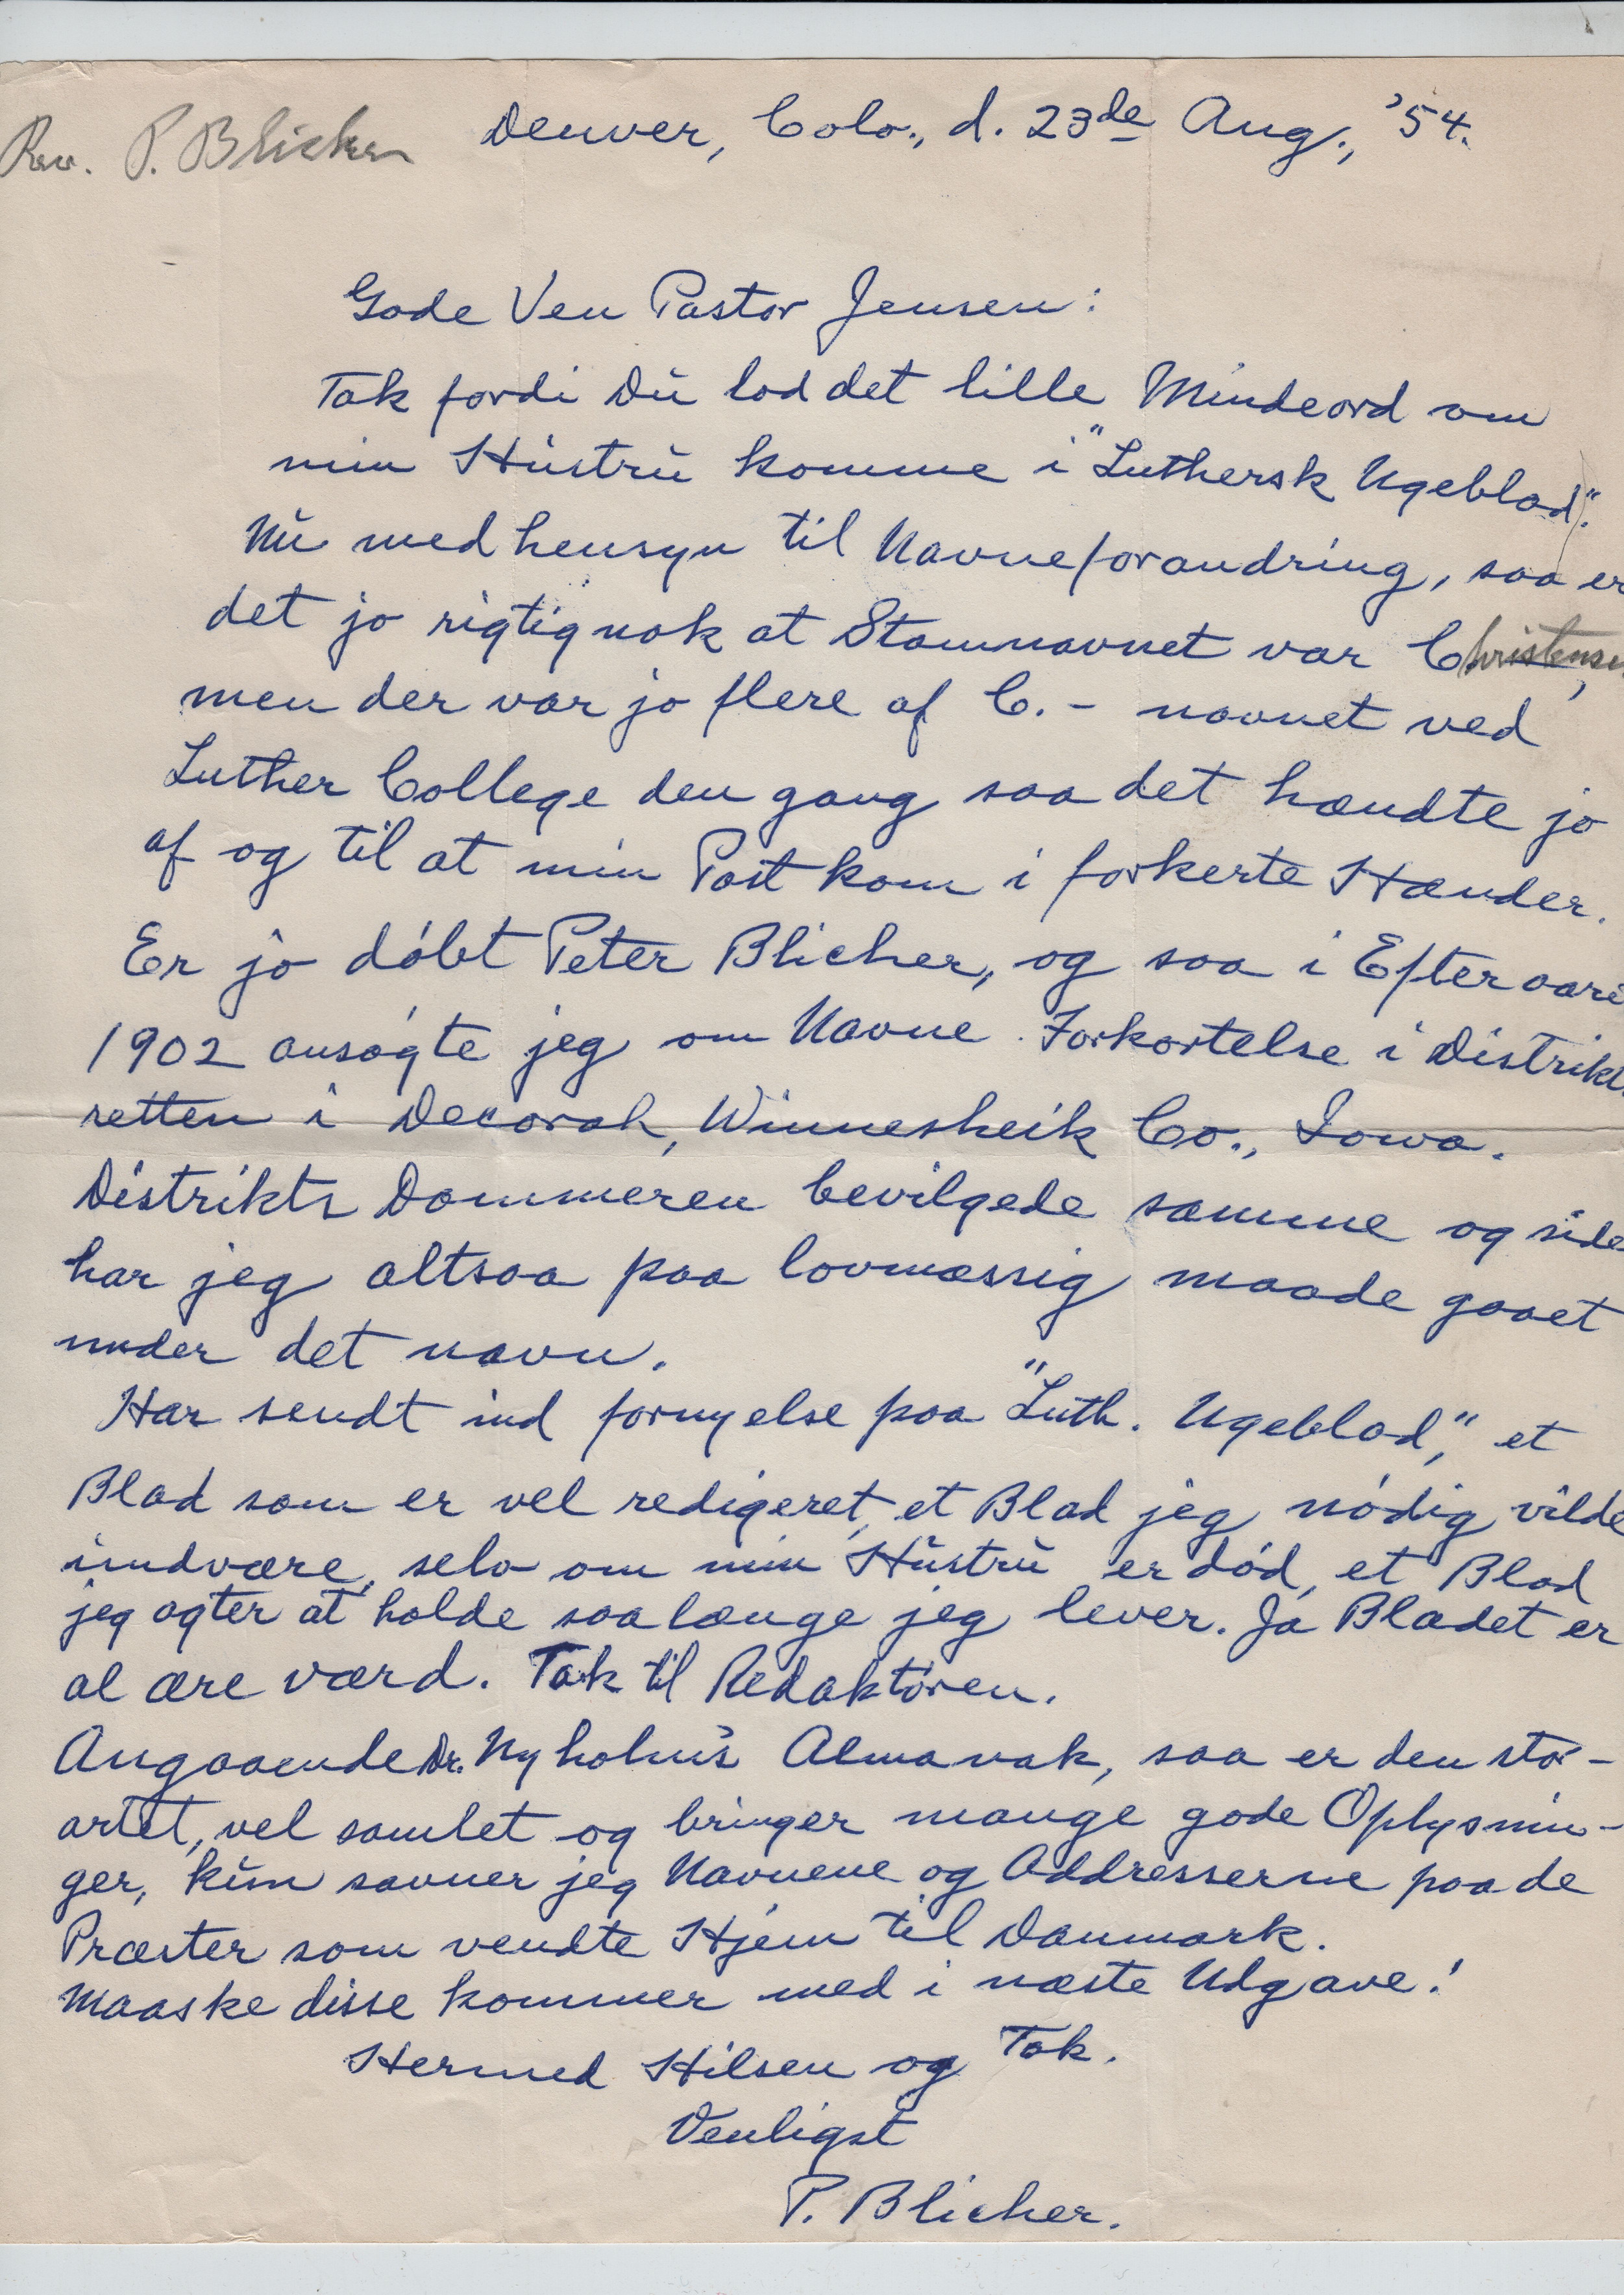 Rev. P. Blicher
Denver, Colo., d. 23de Aug., '54.
Gode Ven Pastor Jensen:
Tak fordi Du lod det lille Mindeord om
min Hustru komme i "Luthersk Ugeblad".
Nu med hensyn til Navneforandring, saa er
det jo rigtignok at Stamnavnet var Christensen,
men der var jo flere af C. - navnet ved
Luther College den gang saa det hændte jo
af og til at min Post kom i forkerte Hænder.
Er jo döbt Peter Blicher, og saa i Efteraaret
1902 ansögte jeg om Navne Forkortelse i Distrikt
retten i Decorah, Winnesheik Co., Iowa.
Distrikts Dommeren bevilgede samme og siden
har jeg altsaa paa lovmæssig maade gaaet
under det navn.
Har sendt ind fornyelse paa "Luth. Ugeblad," et
Blad som er vel redigeret, et Blad jeg nödig vilde
undvære, selv om min Hustru er död, et Blad
jeg agter at holde saa længe jeg lever. Ja Bladet er
al ære værd. Tak til Redaktören.
Angaaende Dr. Nyholm's Almanak, saa er den stor-
artet, vel samlet og bringer mange gode Oplysnin-
ger, kun savner jeg Navnene og Addresserne paa de
Præster som vendte Hjem til Danmark.
Maaske disse kommer med i næste Udgave!
Hermed Hilsen og Tak.
Venligst
P. Blicher.